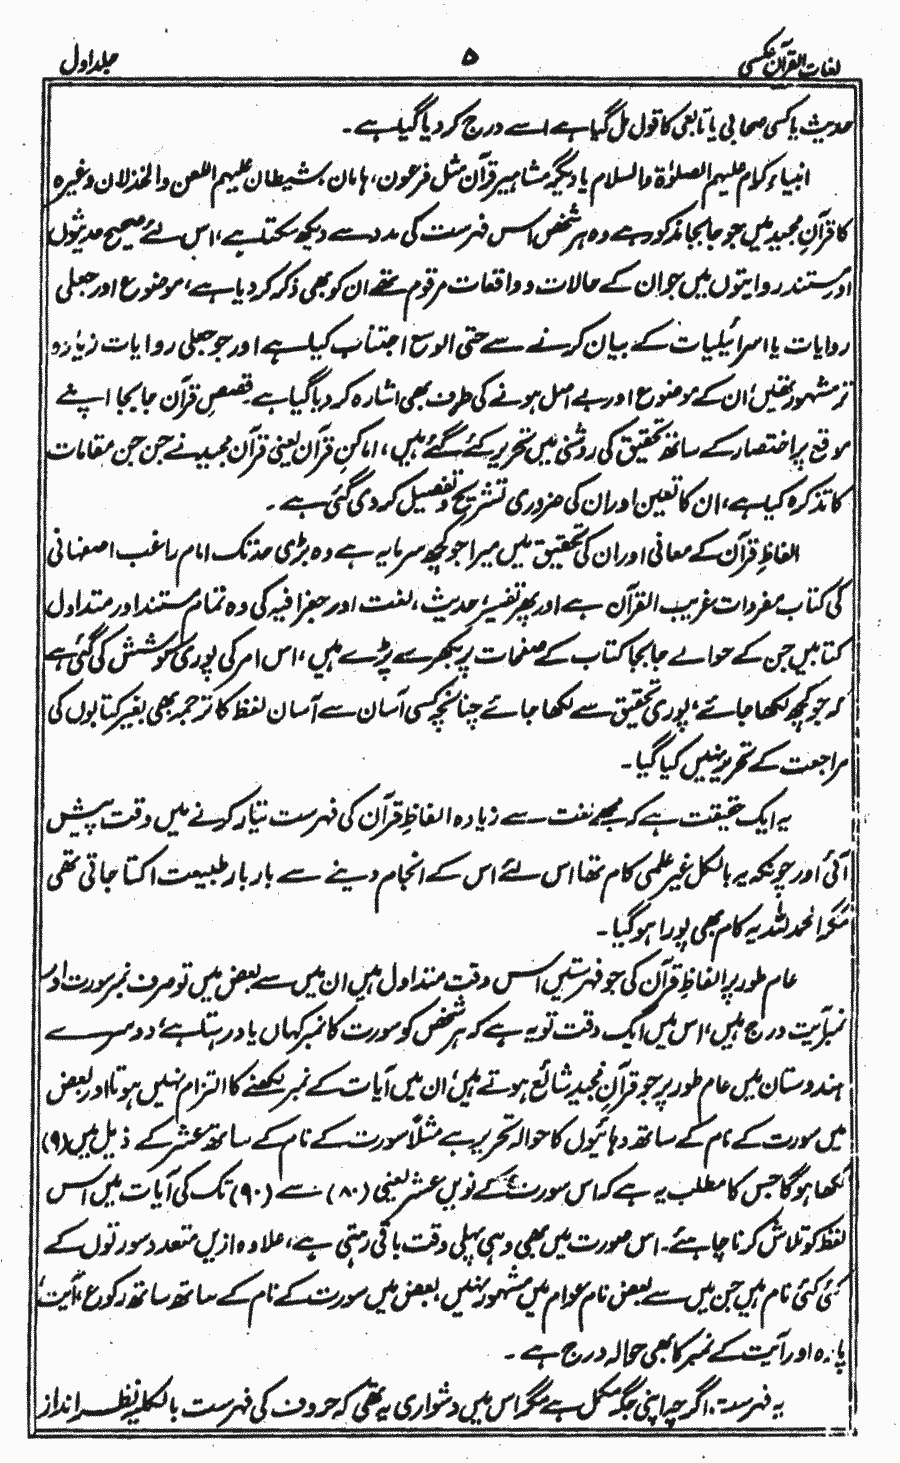 لغات القرآن عکسی
۵
جلد اول
حدیث یا کسی صحابی یا تابعی کا قول مل گیا ہے اسے درج کر دیا گیا ہے۔
انبیاء کرام علیہم الصلوٰۃ والسلام یا دیگر مشاہیر قرآن مثل فرعون، ہامان، شیطان علیہم اللعن والخذلان وغیرہ
کا قرآنِ مجید میں جو جا بجا مذکور ہے وہ ہر شخص اس فہرست کی مدد سے دیکھ سکتا ہے، اس لئے صحیح حدیثوں
اور مستند روایتوں میں جو ان کے حالات و واقعات مرقوم تھے ان کو بھی ذکر کر دیا ہے، موضوع اور جعلی
روایات یا اسرائیلیات کے بیان کرنے سے حتی الوسع اجتناب کیا ہے اور جو جعلی روایات زیادہ
تر مشہور تھیں، ان کے موضوع اور بے اصل ہونے کی طرف بھی اشارہ کر دیا گیا ہے۔ قصصِ قرآن جا بجا اپنے
موقع پر اختصار کے ساتھ تحقیق کی روشنی میں تحریر کئے گئے ہیں، اماکنِ قرآن یعنی قرآن مجید نے جن جن مقامات
کا تذکرہ کیا ہے، ان کا تعین اور ان کی ضروری تشریح و تفصیل کر دی گئی ہے۔
الفاظِ قرآن کے معانی اور ان کی تحقیق میں میرا جو کچھ سرمایہ ہے وہ بڑی حد تک امام راغب اصفہانی
کی کتاب مفردات غریب القرآن ہے اور پھر تفسیر، حدیث، لغت اور جغرافیہ کی وہ تمام مستند اور متداول
کتابیں جن کے حوالے جا بجا کتاب کے صفحات پر بکھرے پڑے ہیں، اس امر کی پوری کوشش کی گئی ہے
کہ جو کچھ لکھا جائے، پوری تحقیق سے لکھا جائے چنانچہ کسی آسان سے آسان لفظ کا ترجمہ بھی بغیر کتابوں کی
مراجعت کے تحریر نہیں کیا گیا۔
یہ ایک حقیقت ہے کہ مجھے لغت سے زیادہ الفاظِ قرآن کی فہرست تیار کرنے میں دقت پیش
آئی اور چونکہ یہ بالکل غیر علمی کام تھا اس لئے اس کے انجام دینے سے بار بار طبیعت اکتا جاتی تھی
مگر الحمد للہ یہ کام بھی پورا ہو گیا۔
عام طور پر الفاظِ قرآن کی جو فہرستیں اس وقت متداول ہیں ان میں سے بعض میں تو صرف نمبر سورت اور
نمبر آیت درج ہیں، اس میں ایک دقت تو یہ ہے کہ ہر شخص کو سورت کا نمبر کہاں یاد رہتا ہے، دوسرے
ہندوستان میں عام طور پر جو قرآن مجید شائع ہوتے ہیں، ان میں آیات کے نمبر لکھنے کا التزام نہیں ہوتا اور بعض
میں سورت کے نام کے ساتھ دہائیوں کا حوالہ تحریر ہے مثلاً سورت کے نام کے ساتھ عشر کے ذیل میں (۹)
لکھا ہو گا جس کا مطلب یہ ہے کہ اس سورت کے نویں عشر یعنی (۸۰) سے (۹۰) تک کی آیات میں اس
لفظ کو تلاش کرنا چاہئے۔ اس صورت میں بھی وہی پہلی دقت باقی رہتی ہے، علاوہ ازیں متعدد سورتوں کے
کئی کئی نام ہیں جن میں سے بعض نام عوام میں مشہور نہیں، بعض میں سورت کے نام کے ساتھ ساتھ رکوع، آیت،
پارہ اور آیت کے نمبر کا بھی حوالہ درج ہے۔
یہ فہرست اگرچہ اپنی جگہ مکمل ہے مگر اس میں دشواری یہ تھی کہ حروف کی فہرست بالکلیہ نظر انداز